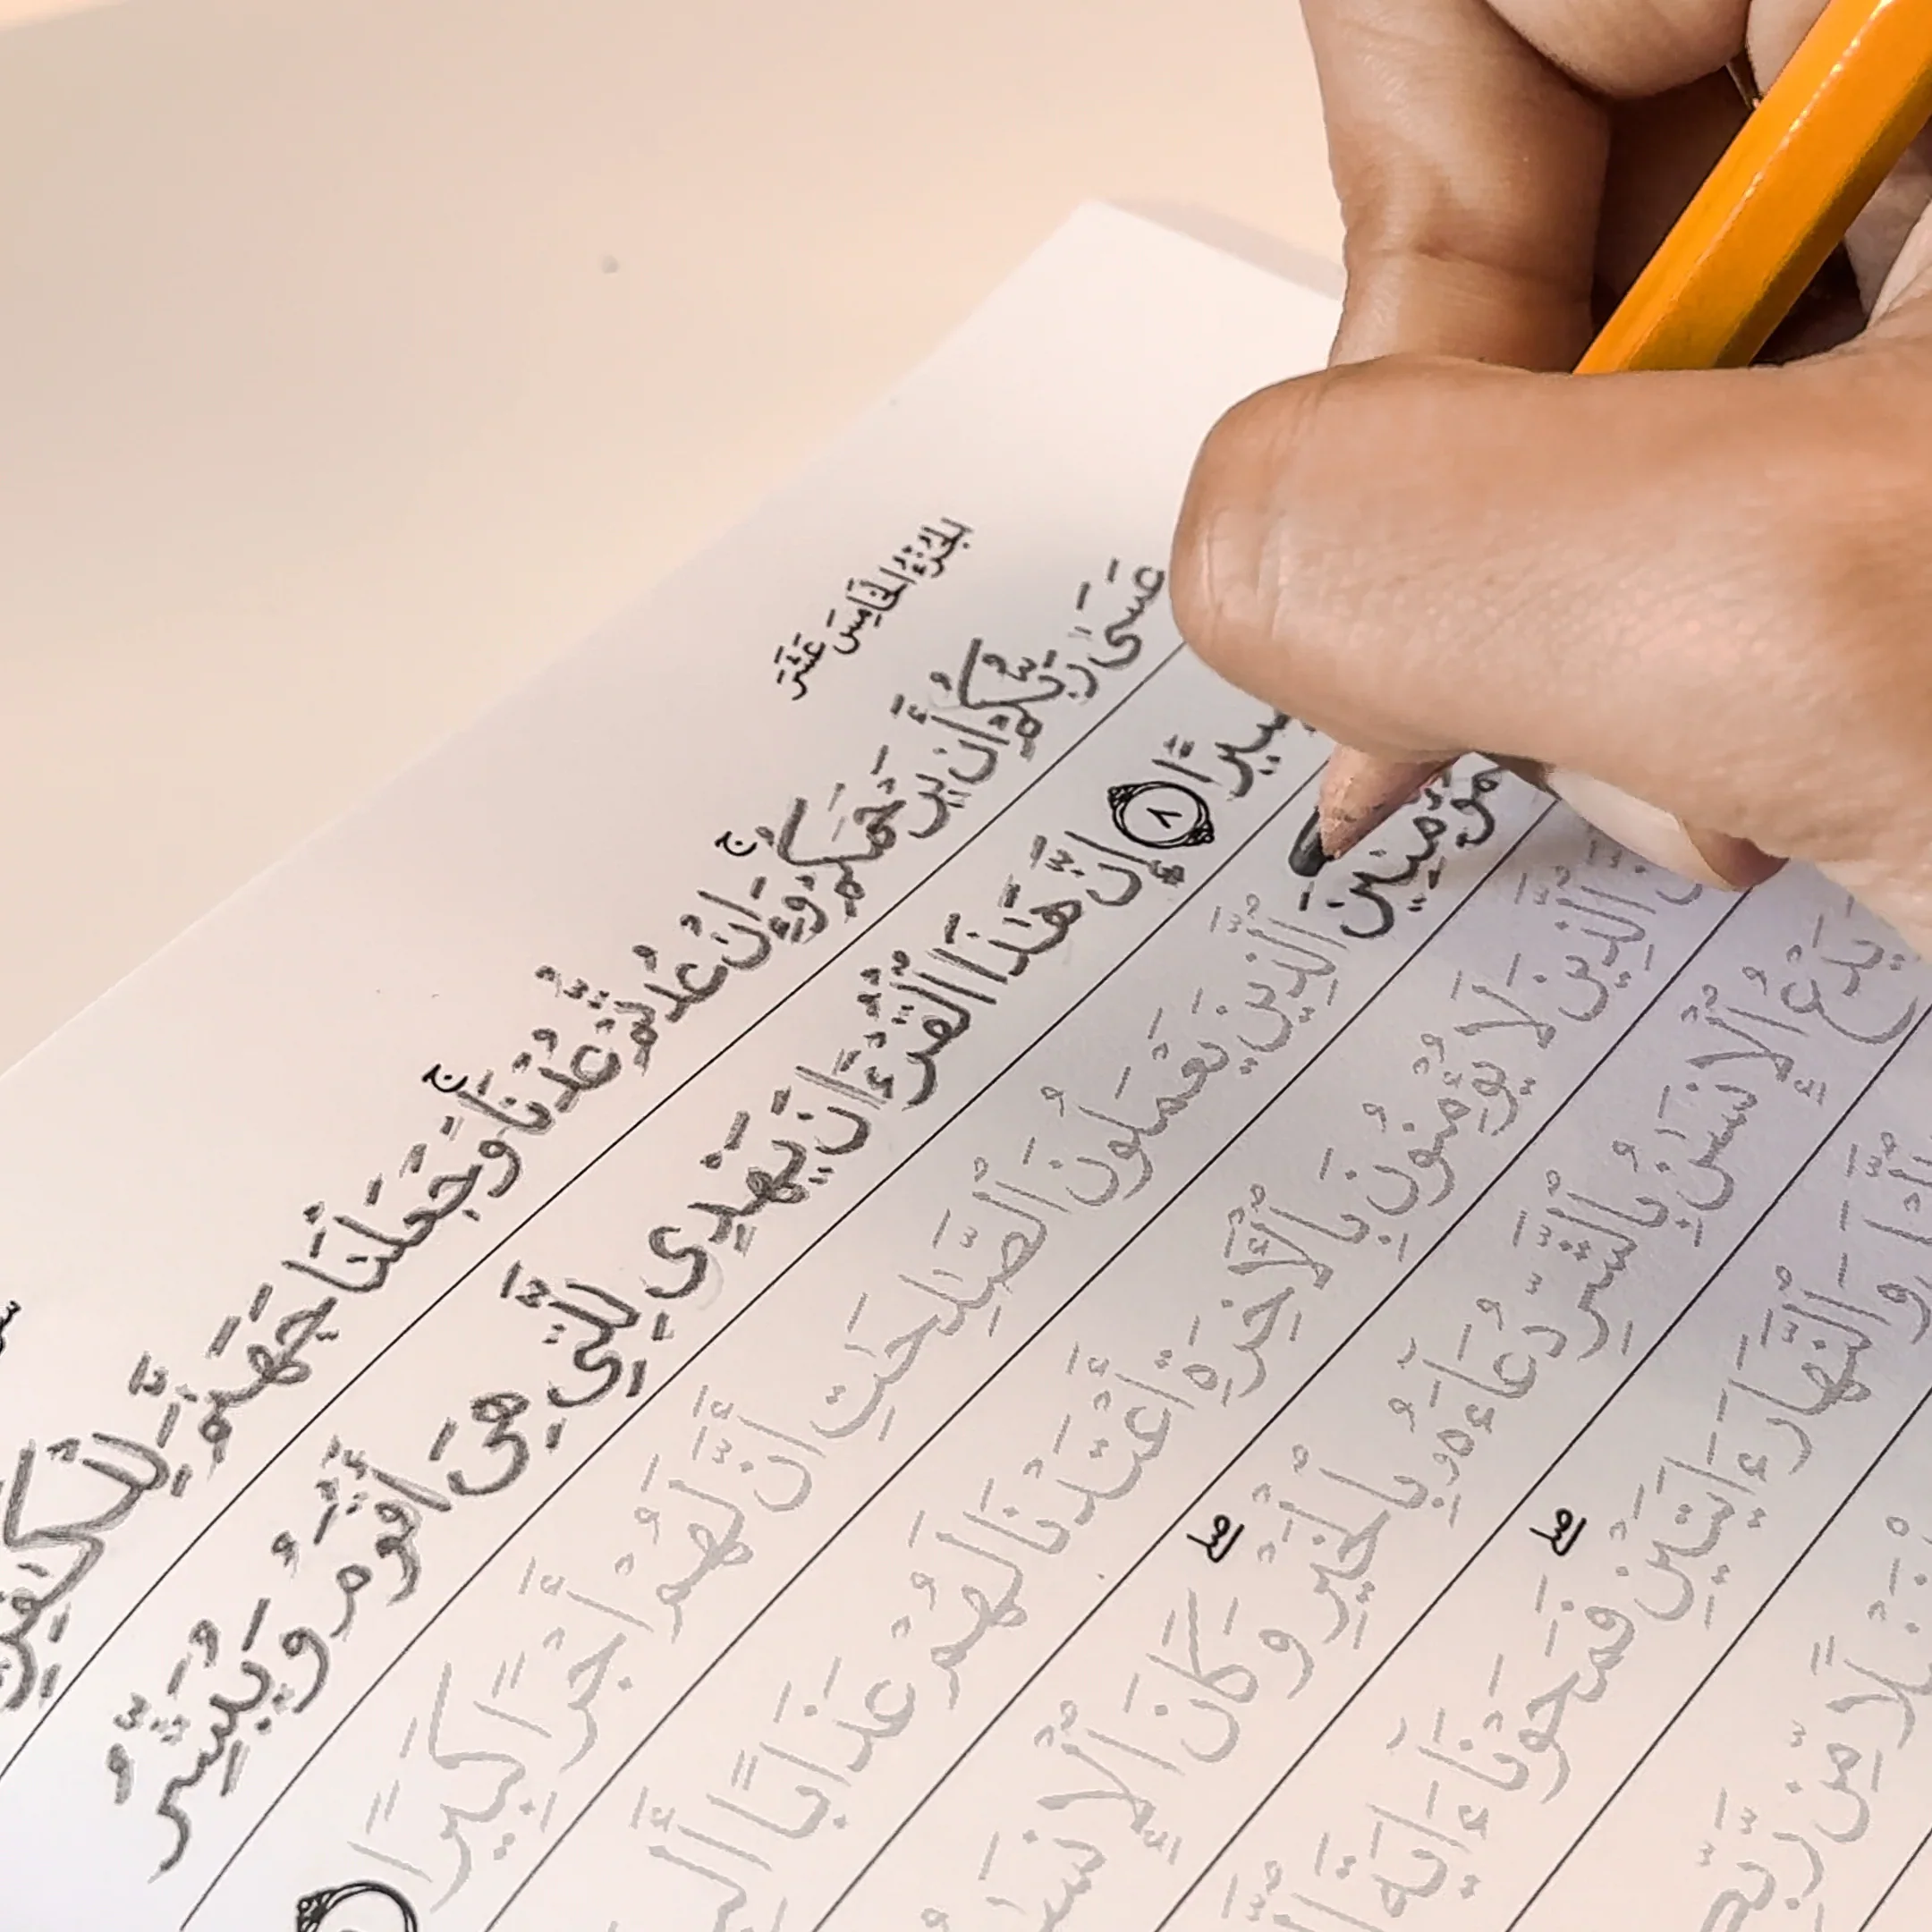 الجُزْءُ الخَامِسَ عَشَرَ
عَسَىٰ رَبُّكُمْ أَن يَرْحَمَكُمْ ۚ وَإِنْ عُدتُّمْ عُدْنَا ۚ وَجَعَلْنَا جَهَنَّمَ لِلْكَٰفِرِ
حَصِيرًا ٨ إِنَّ هَٰذَا ٱلْقُرْءَانَ يَهْدِى لِلَّتِى هِىَ أَقْوَمُ وَيُبَشِّرُ
ٱلْمُؤْمِنِينَ ٱلَّذِينَ يَعْمَلُونَ ٱلصَّٰلِحَٰتِ أَنَّ لَهُمْ أَجْرًا كَبِيرًا
ٱلَّذِينَ لَا يُؤْمِنُونَ بِٱلْءَاخِرَةِ أَعْتَدْنَا لَهُمْ عَذَابًا أَلِي
يَدْعُ ٱلْإِنسَٰنُ بِٱلشَّرِّ دُعَآءَهُۥ بِٱلْخَيْرِ ۖ وَكَانَ ٱلْإِنسَٰ
وَٱلنَّهَارَ ءَايَتَيْنِ ۖ فَمَحَوْنَآ ءَايَةَ
لًا مِّن رَّبِّ